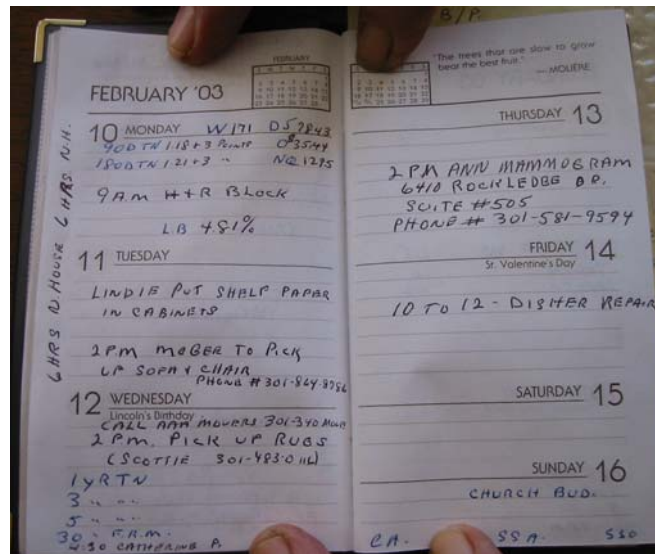 B/P.
FEBRUARY '03
FEBRUARY
10 MONDAY W171 DS 9843
90D TN 1.18 + 3 POINTS O 3544
180D TN 1.21 + 3 " NQ 1295
9 A.M H+R BLOCK
LB 4.81%
6 HRS N HOUSE 6 HRS. N.H.
11 TUESDAY
LINDIE PUT SHELF PAPER
IN CABINETS
2 P.M TO PICK
UP SOFA & CHAIR
PHONE # 301-864-8786
12 WEDNESDAY
Lincoln's Birthday
CALL AAA MOVERS 301-340
2 P.M. PICK UP RUGS
(SCOTTIE 301-483-0112)
1 YR TN
3 " "
5 " "
30 - F.R.M.
4:30 CATHERINE P.
"The trees that are slow to grow
bear the best fruit."
— MOLIÈRE
THURSDAY 13
2 PM ANN MAMMOGRAM
6410 ROCKLEDGE DR.
SUITE #505
PHONE # 301-581-9594
FRIDAY 14
St. Valentine's Day
10 TO 12 - DISHER REPAIR
SATURDAY 15
SUNDAY 16
CHURCH BUD.
CA. SSA. SSO